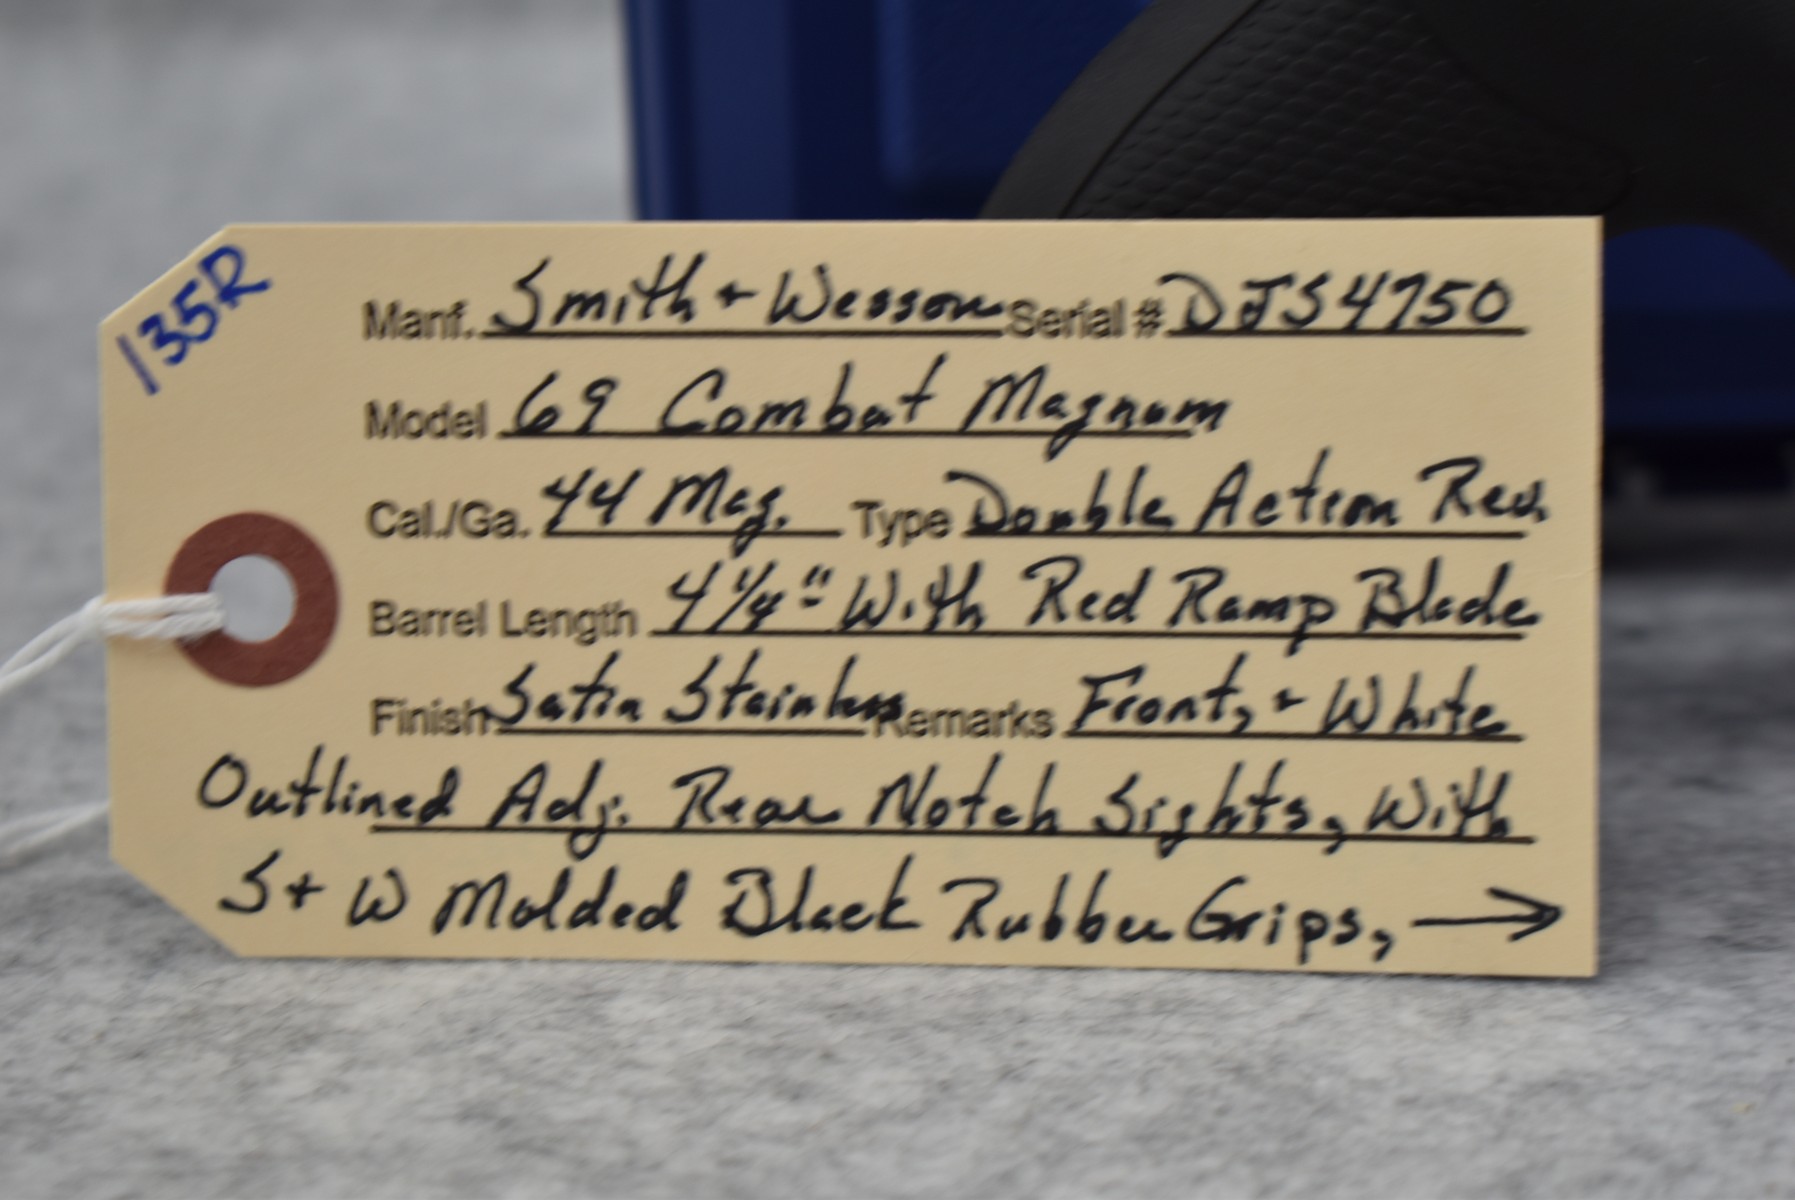 135R
Manf. Smith + Wesson Serial # DJS4750
Model 69 Combat Magnum
Cal./Ga. 44 Mag. Type Double Action Rev.
Barrel Length 4 1/4" With Red Ramp Blade
Finish Satin Stainless Remarks Front, + White
Outlined Adj. Rear Notch Sights, With
S + W Molded Black Rubber Grips, →